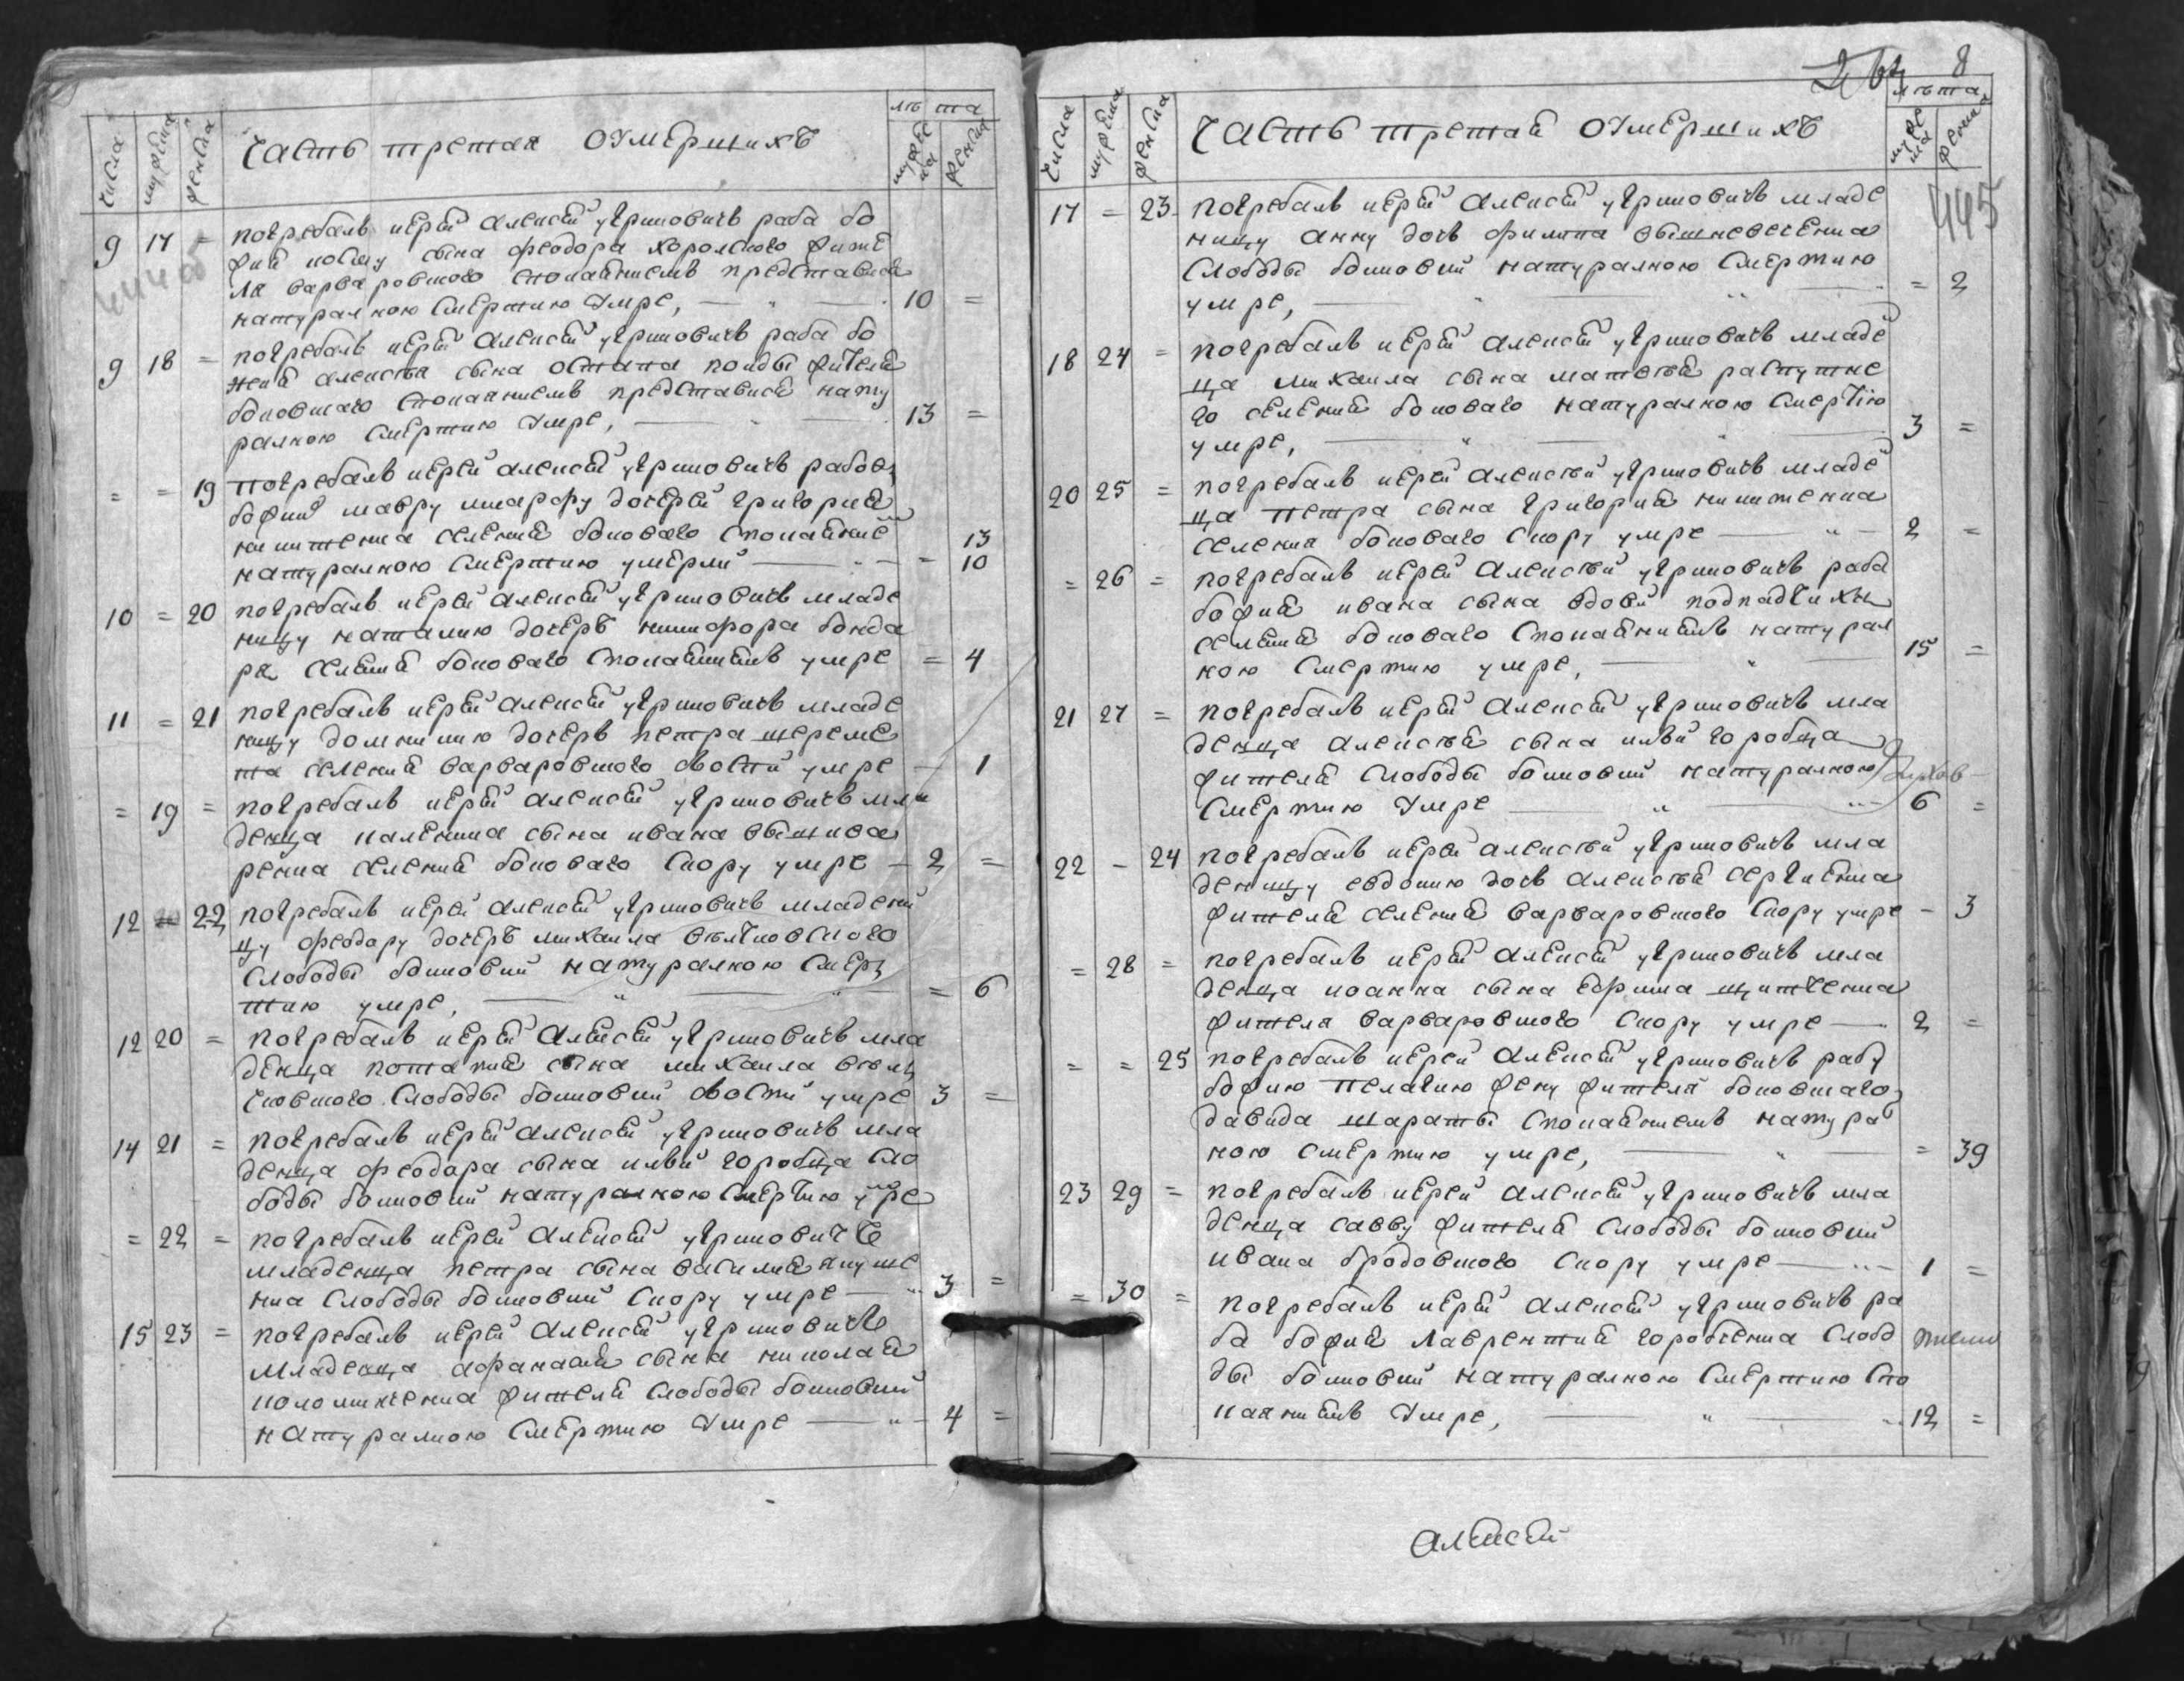 числа мужеска женска Часть третая О Умершихъ лѣ та мужес ка женска
9 17 = погребалъ иерей алексей угриновичъ раба бо
жия козму сына феодора корольского жите
ля варваровского споканниемъ преставися
натуралною смертию умре, 10 =
9 18 = погребалъ иерей алексей угриновичъ раба бо
жия алексѣя сына остапа жителя
боковского споканниемъ представися нату
ралною смертию умре, 13 =
= = 19 погребалъ иерей алексей угриновичъ рабов
божий мавру дочерей григория
никитенка селения боковаго спокаяние 13
натуралною смертию умерли = 10
10 = 20 погребалъ иерей алексей угриновичъ младе
ницу наталию дочеръ никифора бонда
ра селения боковаго спокаяниемъ умре = 4
11 = 21 погребалъ иерей алексей угриновичъ младе
ницу домникию дочерь петра шереме
та селения варваровского овоспи умре 1
= 19 = погребалъ иерей алексей угриновичъ мла
денца каленика сына ивана вышква
ренка селения боковаго скору умре 2 =
12 = 22 погребалъ иерей алексей угриновичъ младени
цу феодору дочеръ михаила
слободы боковий натуралною смер
тию умре, = 6
12 20 = погребалъ иерей алексей угриновичъ мла
денца потапия сына михаила
слободы боковий овоспи умре 3 =
14 21 = погребалъ иерей алексей угриновичъ мла
денца феодора сына горобца сло
боды боковий натуралною смертию умре
= 22 = погребалъ иерей алексей угриновичъ
младенца петра сына василия
слободы боковий скору умре 3 =
15 23 = погребалъ иерей алексей угриновичъ
младенца афанасия сына николая
коломийченка жителя слободы боковий
натуралною смертию умре 4 =
8
числа мужеска женска Часть третая О Умершихъ лѣта мужес ка женска
445
17 = 23 погребалъ иерей алексей угриновичъ младе
ницу анну дочь филипа вышневеченка
слободы боковий натуралною смертию
умре, = 2
18 24 = погребалъ иерей алексей угриновичъ младе
ца михаила сына матвѣя распутне
го селения боковаго натуралною смертию
умре, 3 =
20 25 = погребалъ иерей алексѣй угриновичъ младе
ца петра сына григория никитенка
селения боковаго скору умре 2 =
= 26 = погребалъ иерей алексѣй угриновичъ раба
божия ивана сына вдови подпадчихи
селения боковаго спокаяниемъ натурал
ною смертию умре, 15 =
21 27 = погребалъ иерей алексей угриновичъ мла
денца алексѣя сына горобца
жителя слободы боковий натуралною
смертию умре 6 =
22 = 24 погребалъ иерей алексѣй угриновичъ мла
деницу евдокию дочь алексѣя сергиенка
жителя селения варваровского скору умре = 3
= 28 = погребалъ иерей алексей угриновичъ мла
денца иоанна сына ефима
жителя варваровского скору умре 2 =
= = 25 погребалъ иерей алексей угриновичъ рабу
божию пелагию жену жителя боковского
давида шарапы спокаяниемъ натура
ною смертию умре, = 39
23 29 = погребалъ иерей алексей угриновичъ мла
денца савву жителя слободы боковий
ивана бродовского скору умре 1 =
= 30 = погребалъ иерей алексей угриновичъ ра
ба божия лаврентия горобченка слобо
ды боковий натуралною смертию спо
каяниемъ умре, 12 =
алексей